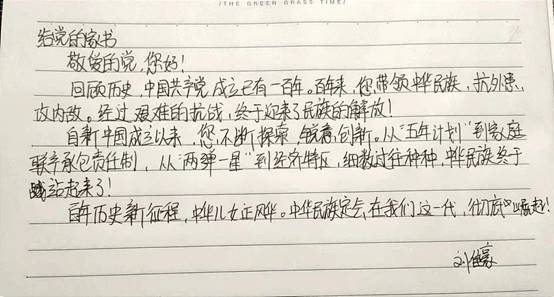 /THE GREEN GRASS TIME/
给党的家书
敬爱的党,您好!
回顾历史,中国共产党成立已有一百年。百年来,您带领中华民族,抗外患,
攻内敌。经过艰难的抗战,终于迎来了民族的解放!
自新中国成立以来,您不断探索,锐意创新。从“五年计划”到家庭
联产承包责任制,从“两弹一星”到经济特区,细数过往种种,中华民族终于
站起来了!
百年历史新征程,中华儿女正风华。中华民族定会在我们这一代,彻底崛起!
刘豪